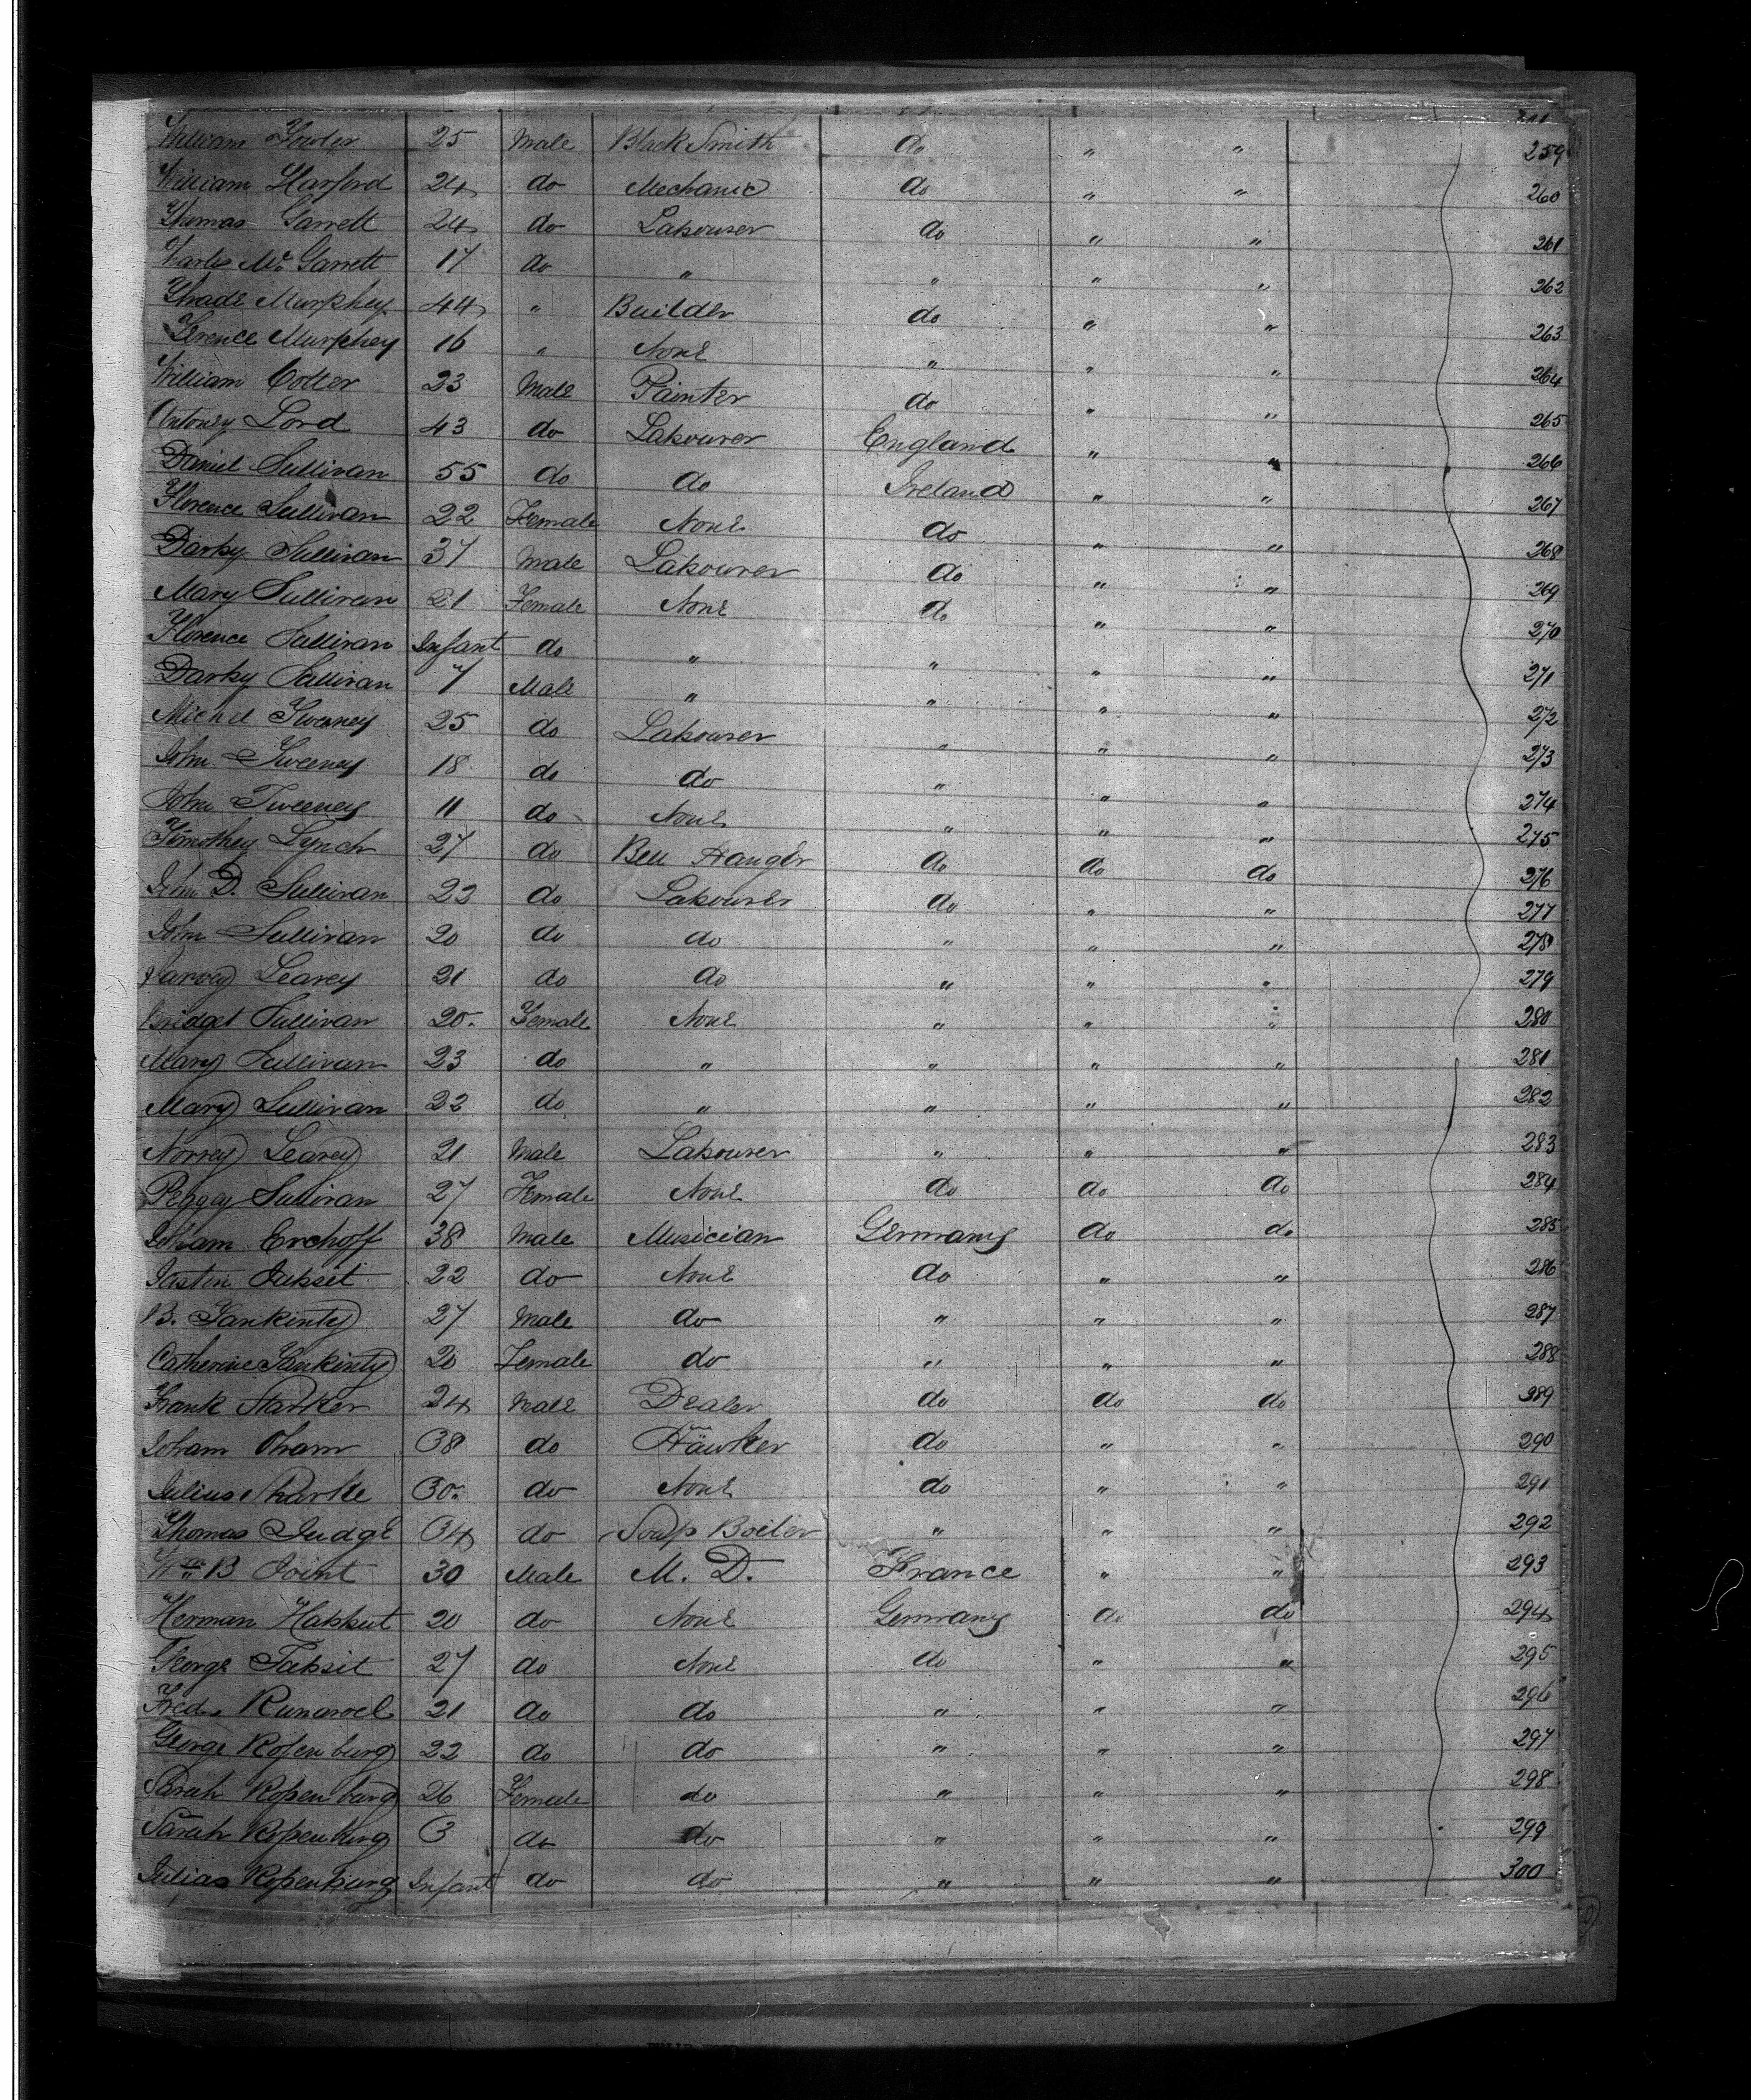 William Fowler 25 Male Black Smith do " " 259
William Harford 24 do Mechanic do " " 260
Thomas Garrett 24 do Labourer do " " 261
Mc Garrett 17 do " " " " 262
Murphey 44 " Builder do " " 263
Terence Murphey 16 " None " " " 264
William Cotter 23 Male Painter do " " 265
Antoney Lord 43 do Labourer England " " 266
Daniel Sullivan 55 do do Ireland " " 267
Florence Sullivan 22 Female None do " " 268
Darby Sullivan 37 Male Labourer do " " 269
Mary Sullivan 21 Female None do " " 270
Florence Sullivan Infant do " " " " 271
Darby Sullivan 7 Male " " " " 272
Michel Sweeney 25 do Labourer " " " 273
John Sweeney 18 do do " " " 274
John Sweeney 11 do None " " " 275
Timothey Lynch 27 do Bell Hanger do do do 276
John D. Sullivan 22 do Labourer do " " 277
John Sullivan 20 do do " " " 278
Learey 21 do do " " " 279
Bridget Sullivan 20. Female None " " " 280
Mary Sullivan 23 do " " " " 281
Mary Sullivan 22 do " " " " 282
Norrey Learey 21 Male Labourer " " " 283
Peggy Sullivan 27 Female None do do do 284
Joham Erchoff 38 Male Musician Germany do do 285
22 do None do " " 286
B. Tankinty 27 Male do " " " 287
Catherine Tankinty 20 Female do " " " 288
Frank Starker 24 Male Dealer do do do 289
Joham Oham 38 do Hawker do " " 290
Julius Sharke 30. do None do " " 291
Thomas Judge 34 do Soap Boiler " " " 292
Wm B Joint 30 Male M. D. France " " 293
Herman 20 do None Germany do do 294
George 27 do None do " " 295
Fred. 21 do do " " " 296
George Rosenburg 22 do do " " " 297
Sarah Rosenburg 26 Female do " " " 298
Sarah Rosenburg 3 do do " " " 299
Julias Rosenburg Infant do do " " " 300